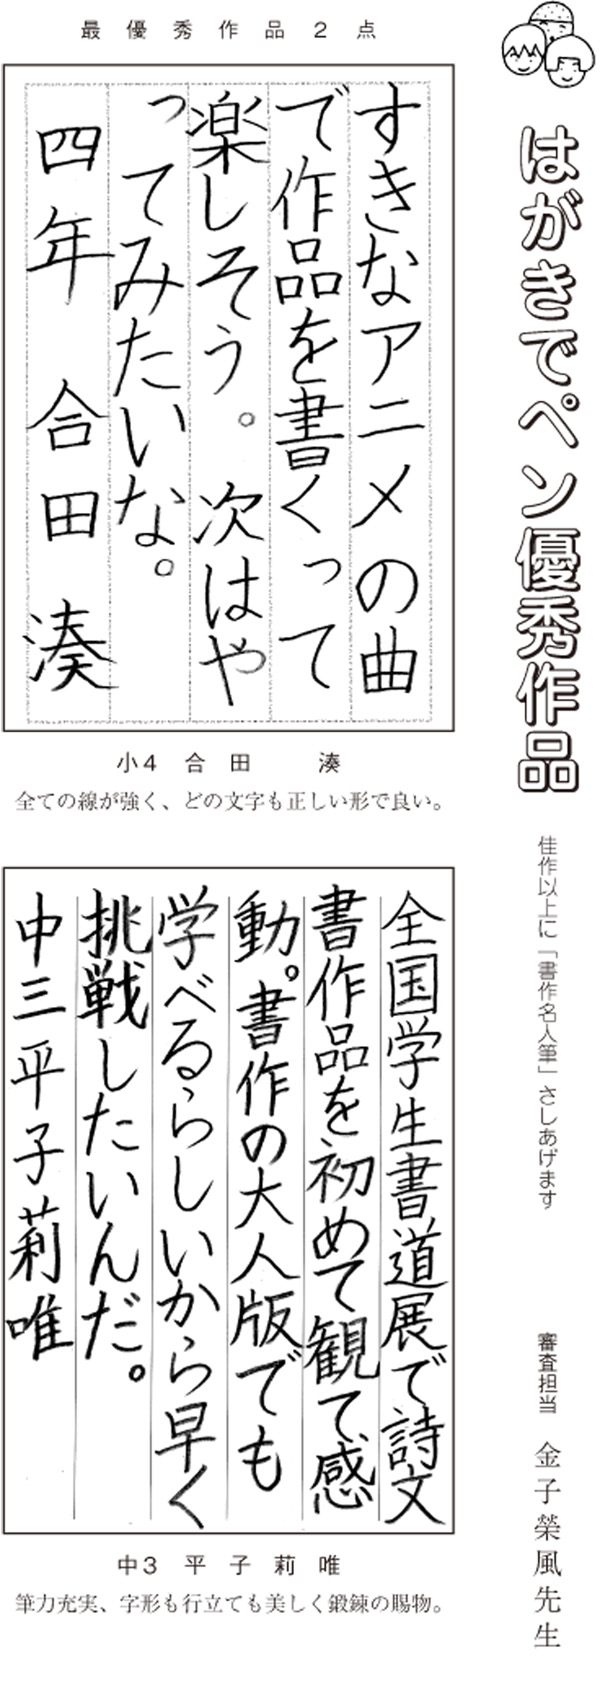 はがきでペン優秀作品
佳作以上に「書作名人筆」さしあげます
審査担当　金子榮風先生
最優秀作品2点
すきなアニメの曲
で作品を書くって
楽しそう。次はや
ってみたいな。
四年　合田湊
小4　合田　湊
全ての線が強く、どの文字も正しい形で良い。
全国学生書道展で詩文
書作品を初めて観て感
動。書作の大人版でも
学べるらしいから早く
挑戦したいんだ。
中三平子莉唯
中3　平子莉唯
筆力充実、字形も行立ても美しく鍛錬の賜物。